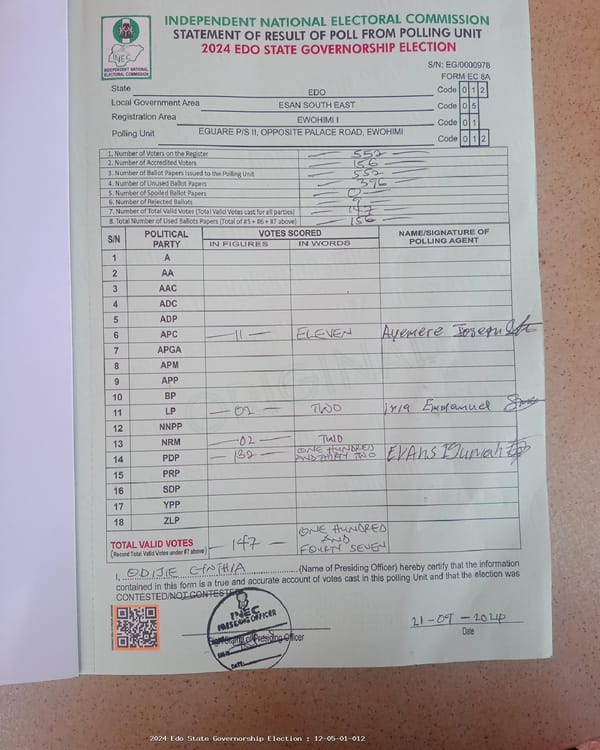 INDEPENDENT NATIONAL ELECTORAL COMMISSION
STATEMENT OF RESULT OF POLL FROM POLLING UNIT
2024 EDO STATE GOVERNORSHIP ELECTION
INEC
INDEPENDENT NATIONAL ELECTORAL COMMISSION
S/N: EG/0000978
FORM EC 8A
State EDO Code 0 1 2
Local Government Area ESAN SOUTH EAST Code 0 5
Registration Area EWOHIMI I Code 0 1
Polling Unit EGUARE P/S II, OPPOSITE PALACE ROAD, EWOHIMI Code 0 1 2
1. Number of Voters on the Register 552
2. Number of Accredited Voters 156
3. Number of Ballot Papers Issued to the Polling Unit 552
4. Number of Unused Ballot Papers 396
5. Number of Spoiled Ballot Papers 0
6. Number of Rejected Ballots 9
7. Number of Total Valid Votes (Total Valid Votes cast for all parties) 147
8. Total Number of Used Ballots Papers (Total of #5 + #6 + #7 above) 156
S/N POLITICAL PARTY VOTES SCORED NAME/SIGNATURE OF POLLING AGENT
IN FIGURES IN WORDS
1 A
2 AA
3 AAC
4 ADC
5 ADP
6 APC 11 ELEVEN Ayemere Joseph
7 APGA
8 APM
9 APP
10 BP
11 LP 02 TWO Emmanuel
12 NNPP
13 NRM 02 TWO
14 PDP 132 ONE HUNDRED AND THIRTY TWO EVANS
15 PRP
16 SDP
17 YPP
18 ZLP
TOTAL VALID VOTES 147 ONE HUNDRED AND FOURTY SEVEN
(Record Total Valid Votes under #7 above)
I, ODIJIE CYNTHIA (Name of Presiding Officer) hereby certify that the information
contained in this form is a true and accurate account of votes cast in this polling Unit and that the election was
CONTESTED/NOT CONTESTED
INEC
PRESIDING OFFICER
Signature of Presiding Officer
DATE:
21-09-2024
Date
2024 Edo State Governorship Election : 12-05-01-012